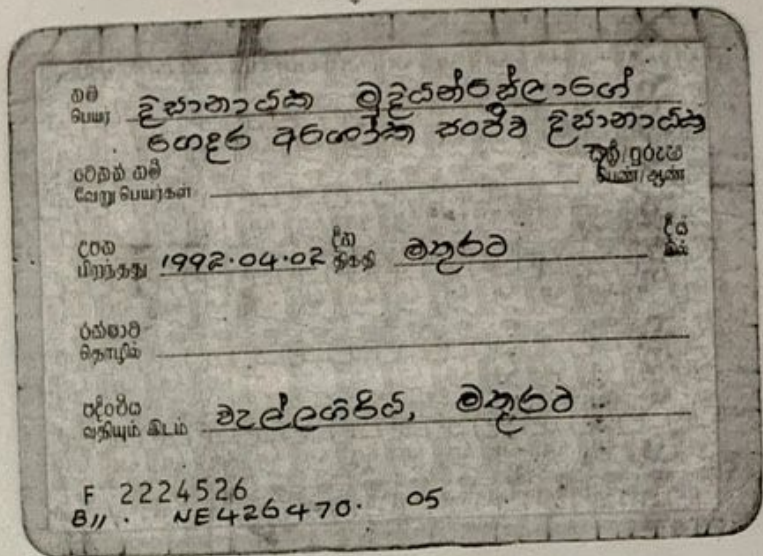 නම
பெயர் දිසානායක මුදියන්සේලාගේ
ගෙදර අශෝක සංජීව දිසානායක
වෙනත් නම් ස්ත්‍රී/පුරුෂ
வேறு பெயர்கள் பெண்/ஆண்
උපන් දින
பிறந்தது 1992.04.02 திகதி මතුරට
රක්ෂාව
தொழில்
පදිංචිය
வதியும் இடம் වැල්ලගිරිය, මතුරට
F 2224526
B//. NE426470. 05